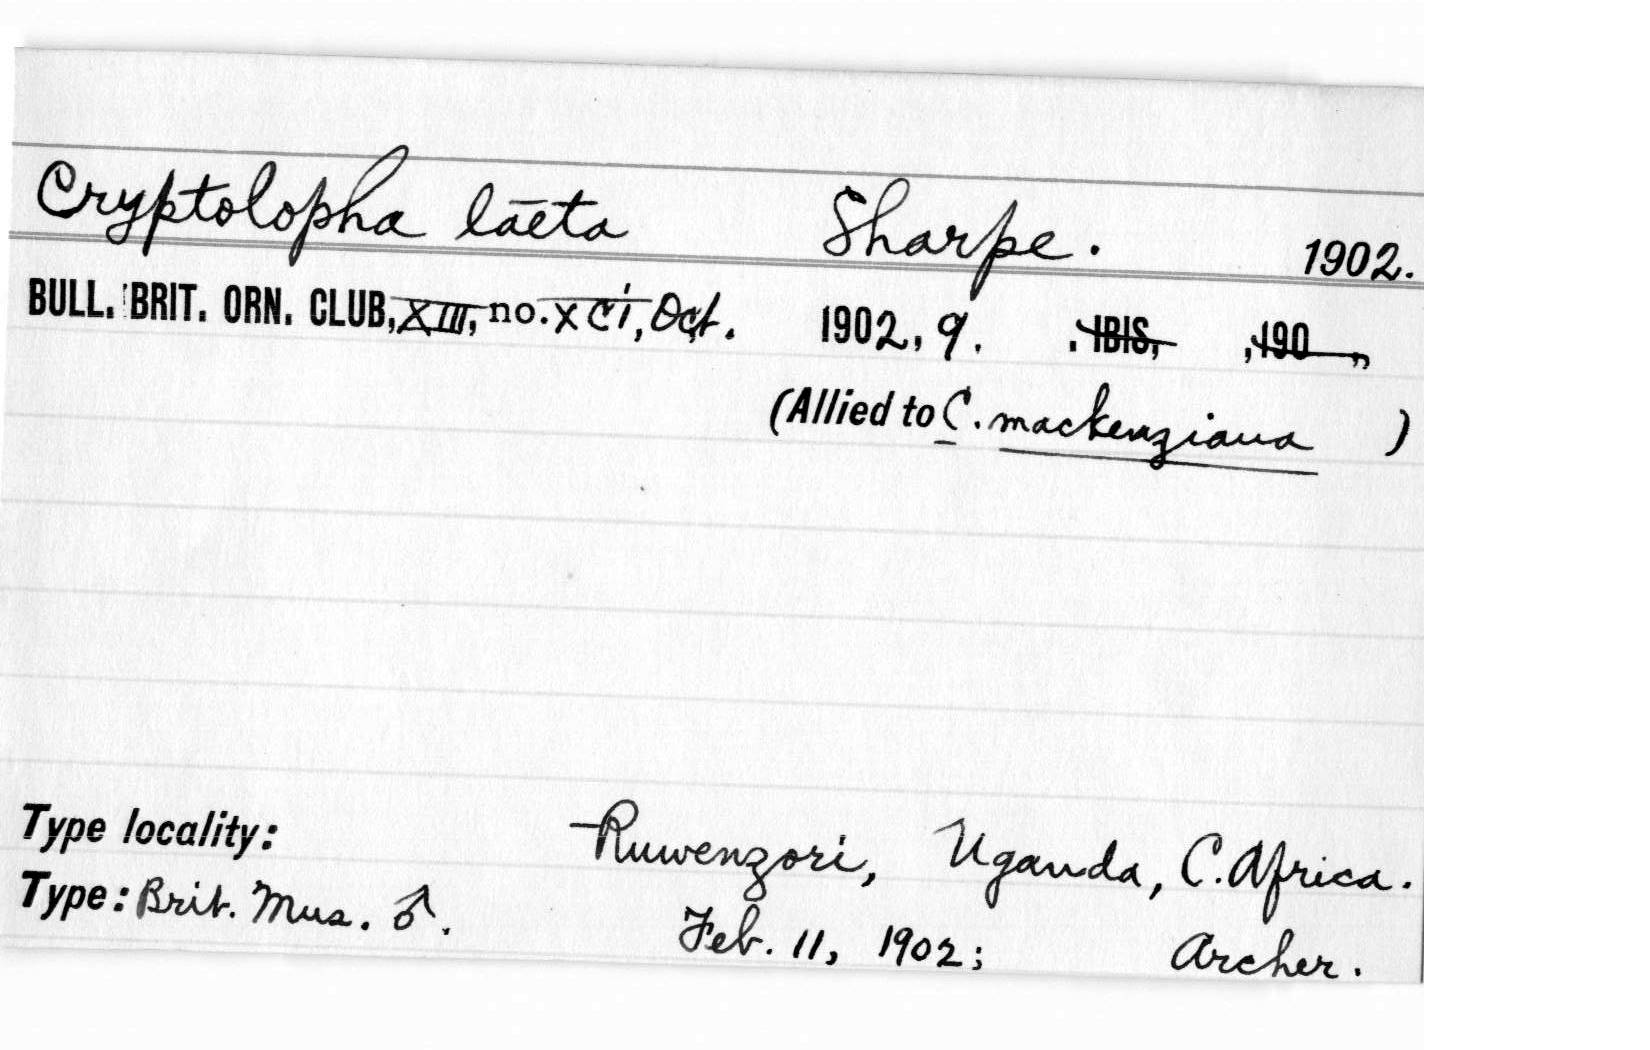 Cryptolopha laeta Sharpe. 1902.
BULL. BRIT. ORN. CLUB, XIII, no. XCI, Oct. 1902, 9. . IBIS, ,190 ,,
(Allied to C. mackenziana )
Type locality: Ruwenzori, Uganda, C. Africa.
Type: Brit. Mus. ♂. Feb. 11, 1902; Archer.